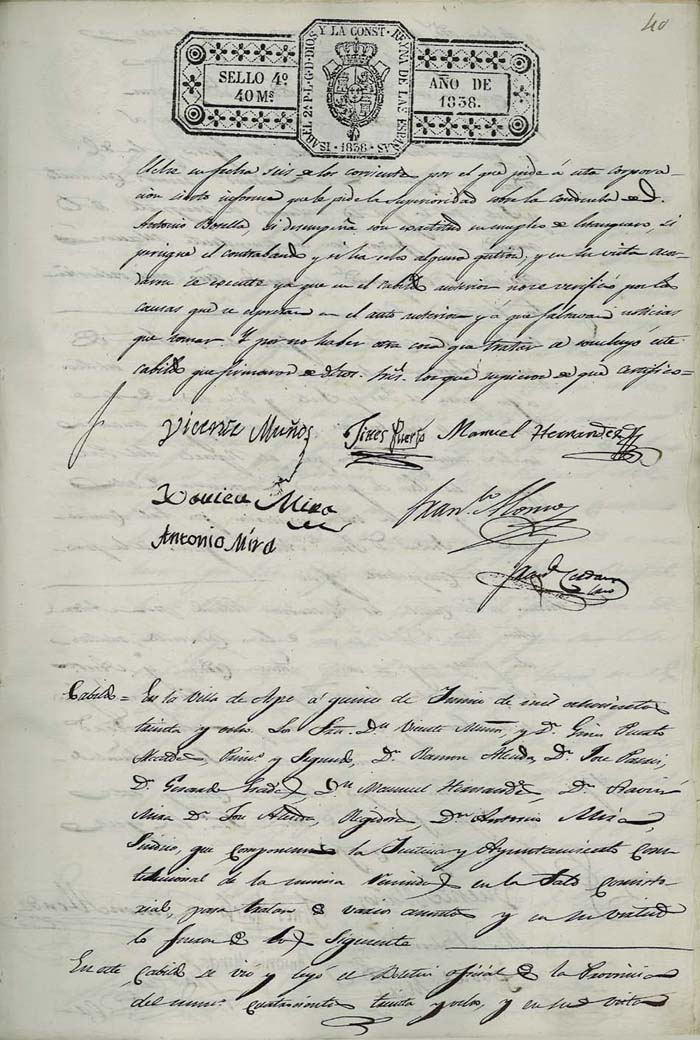 40
SELLO 4º
40 Mˢ
ISABEL 2ª P. L. G. D. DIOS Y LA CONST. REYNA DE LAS ESPAÑAS
1838
AÑO DE
1838.
fecha seis de los corrientes por el que pide á esta corpora-
cion cierto informe que le pide la superioridad sobre la conducta de D.
Antonio si desempeña con exactitud su empleo de si
persigue el contrabando y si ha echo alguna y en su vista aca-
daron se egecute ya que en el cabildo anterior no se verificó por las
causas que se espresan en el auto anterior y á que faltavan noticias
que tomar Y por no haber otra cosa que tratar se concluyó este
cabildo que firmaron dchos. Srs. los que supieron de que certifico=
Vicente Muños Jines Puerto Manuel Hernandez
Xavier Mira Franco
Antonio Mira
Cabildo = En la villa de Aspe á quince de Junio de mil ochocientos
treinta y ocho. Los Srs. Dn Vicente Muños, y Dn Gines Puerto
Alcaldes, Primº y Segundo, Dn Ramon Dn Jose
Dn Gerardo Dn Manuel Hernandez, Dn Xavier
Mira Dn Jose Regidores, Dn Antonio Mira,
Sindico, que componen la Justicia y Ayuntamiento Cons-
titucional de la misma en la Sala Consisto-
rial, para tratar de varios asuntos y en su virtud
lo fueron de los Siguiente
En este Cabildo se vió y leyó el Boletin oficial de la Provincia
del num. cuatrocientos treinta y ocho, y en su vista